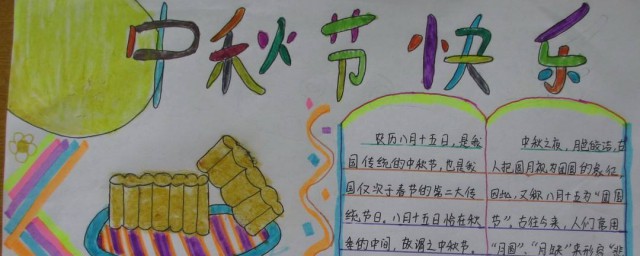 中秋节快乐
农历八月十五日，是我
国传统的中秋节，也是我
国仅次于春节的第二大传
统节日。八月十五日恰在秋
季的中间，故谓之中秋节。
中秋之夜，月色皎洁，古
人把圆月视为团圆的象征，
因此，又称八月十五为“团圆
节”。古往今来，人们常用
“月圆”、“月缺”来形容“悲